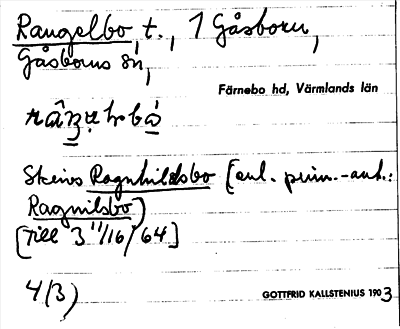 Rangelbo t., 1 Gåsborn,
Gåsborns sn,
Färnebo hd, Värmlands län
Skrivs Ragnhildsbo (enl. prim.-ant.:
Ragnilsbo)
[Till 3 11/16/64]
4/3)
GOTTFRID KALLSTENIUS 1903